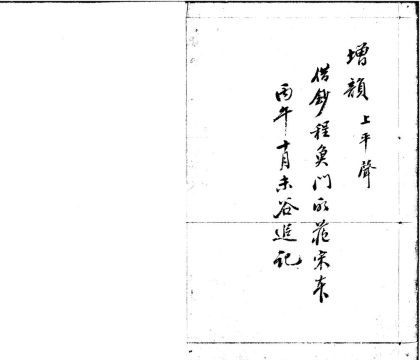 增韻 上平聲
借鈔程魚門所藏宋本
丙午十月未谷追記